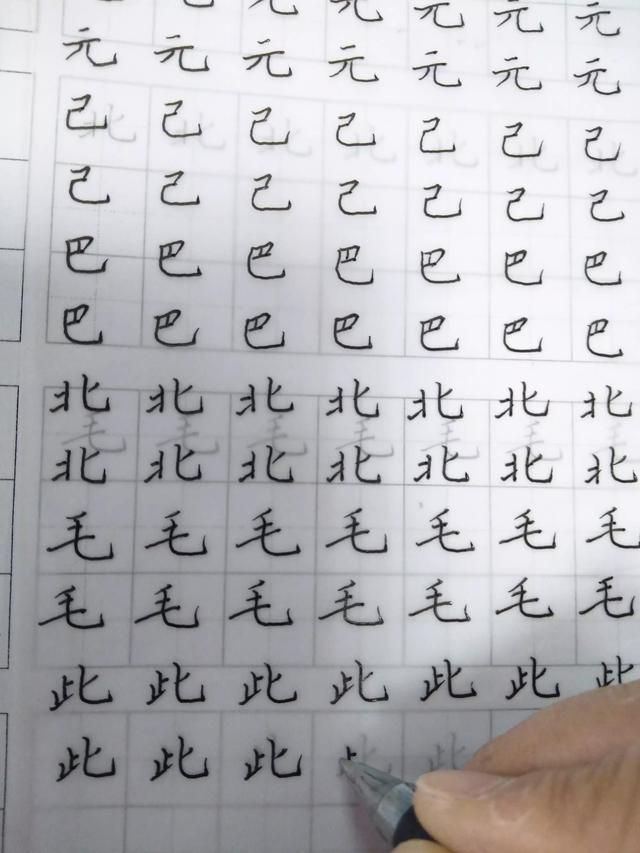 元元元元
元元元元元元元
己己己己己己己
己己己己己己己
巴巴巴巴巴巴巴
巴巴巴巴巴巴巴
北北北北北北北
北北北北北北北
毛毛毛毛毛毛毛
毛毛毛毛毛毛毛
此此此此此此此
此此此